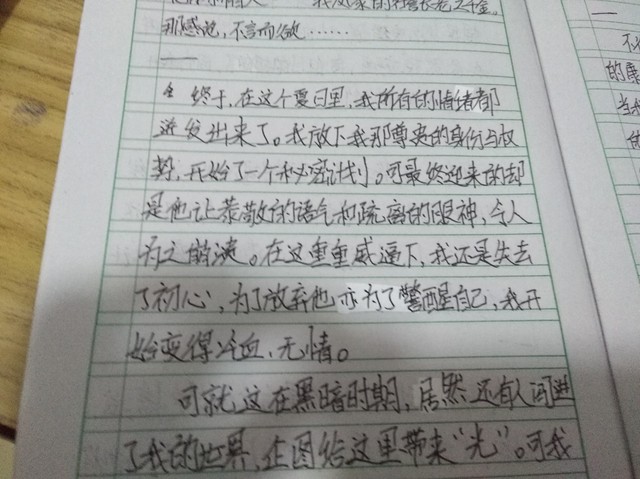 我成家的社长老之千金。
那感觉，不言而欲……
终于，在这个夏日里，我所有的情绪都
迸发出来了。我放下我那尊贵的身份与权
势，开始了一个秘密计划。可最终迎来的却
是他让恭敬的语气和疏离的眼神，令人
为之崩溃。在这重重威逼下，我还是失去
了初心，为了放弃他亦为了警醒自己，我开
始变得冷血、无情。
可就这在黑暗时期，居然还有人闯进
了我的世界，企图给这里带来“光”。可我
不
的康
当我